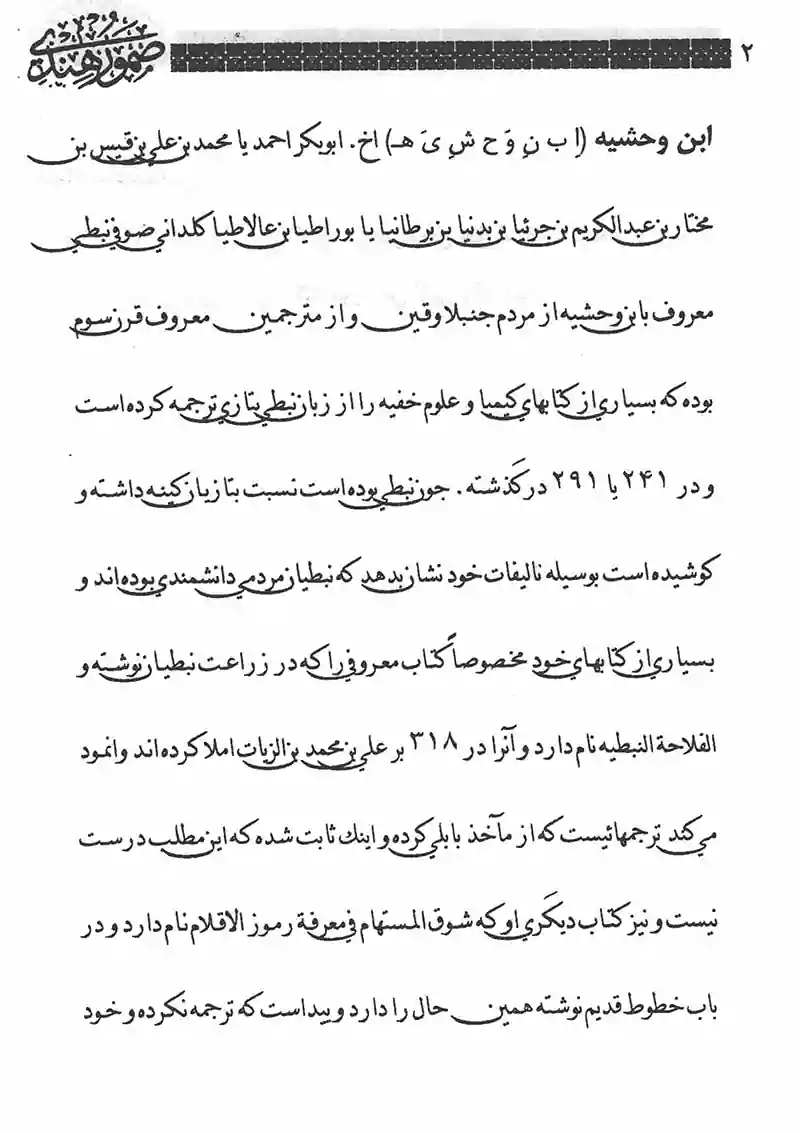 ضمور هندی
۲
ابن وحشیه (ا ب نِ وَ ح شِ یَ هـ) اخ. ابوبکر احمد یا محمد بن علي بن قیس بن
مختار بن عبدالکریم بن جرثیا بن بدنیا بن برطانیا یا بوراطیا بن عالاطیا کلداني صوفي نبطي
معروف بابن وحشیه از مردم جنبلا وقین و از مترجمین معروف قرن سوم
بوده که بسیاري از کتابهاي کیمیا و علوم خفیه را از زبان نبطي بتازي ترجمه کرده است
و در ۲۴۱ یا ۲۹۱ درگذشته. جون نبطي بوده است نسبت بتازیان کینه داشته و
کوشیده است بوسیله تالیفات خود نشان بدهد که نبطیان مردمي دانشمندي بوده اند و
بسیاري از کتابهاي خود مخصوصاً کتاب معروفي را که در زراعت نبطیان نوشته و
الفلاحة النبطیه نام دارد و آنرا در ۳۱۸ بر علي بن محمد بن الزیات املا کرده اند وانمود
مي کند ترجمهائیست که از مآخذ بابلي کرده و اینك ثابت شده که این مطلب درست
نیست و نیز کتاب دیگري او که شوق المستهام في معرفة رموز الاقلام نام دارد و در
باب خطوط قدیم نوشته همین حال را دارد و پیداست که ترجمه نکرده و خود